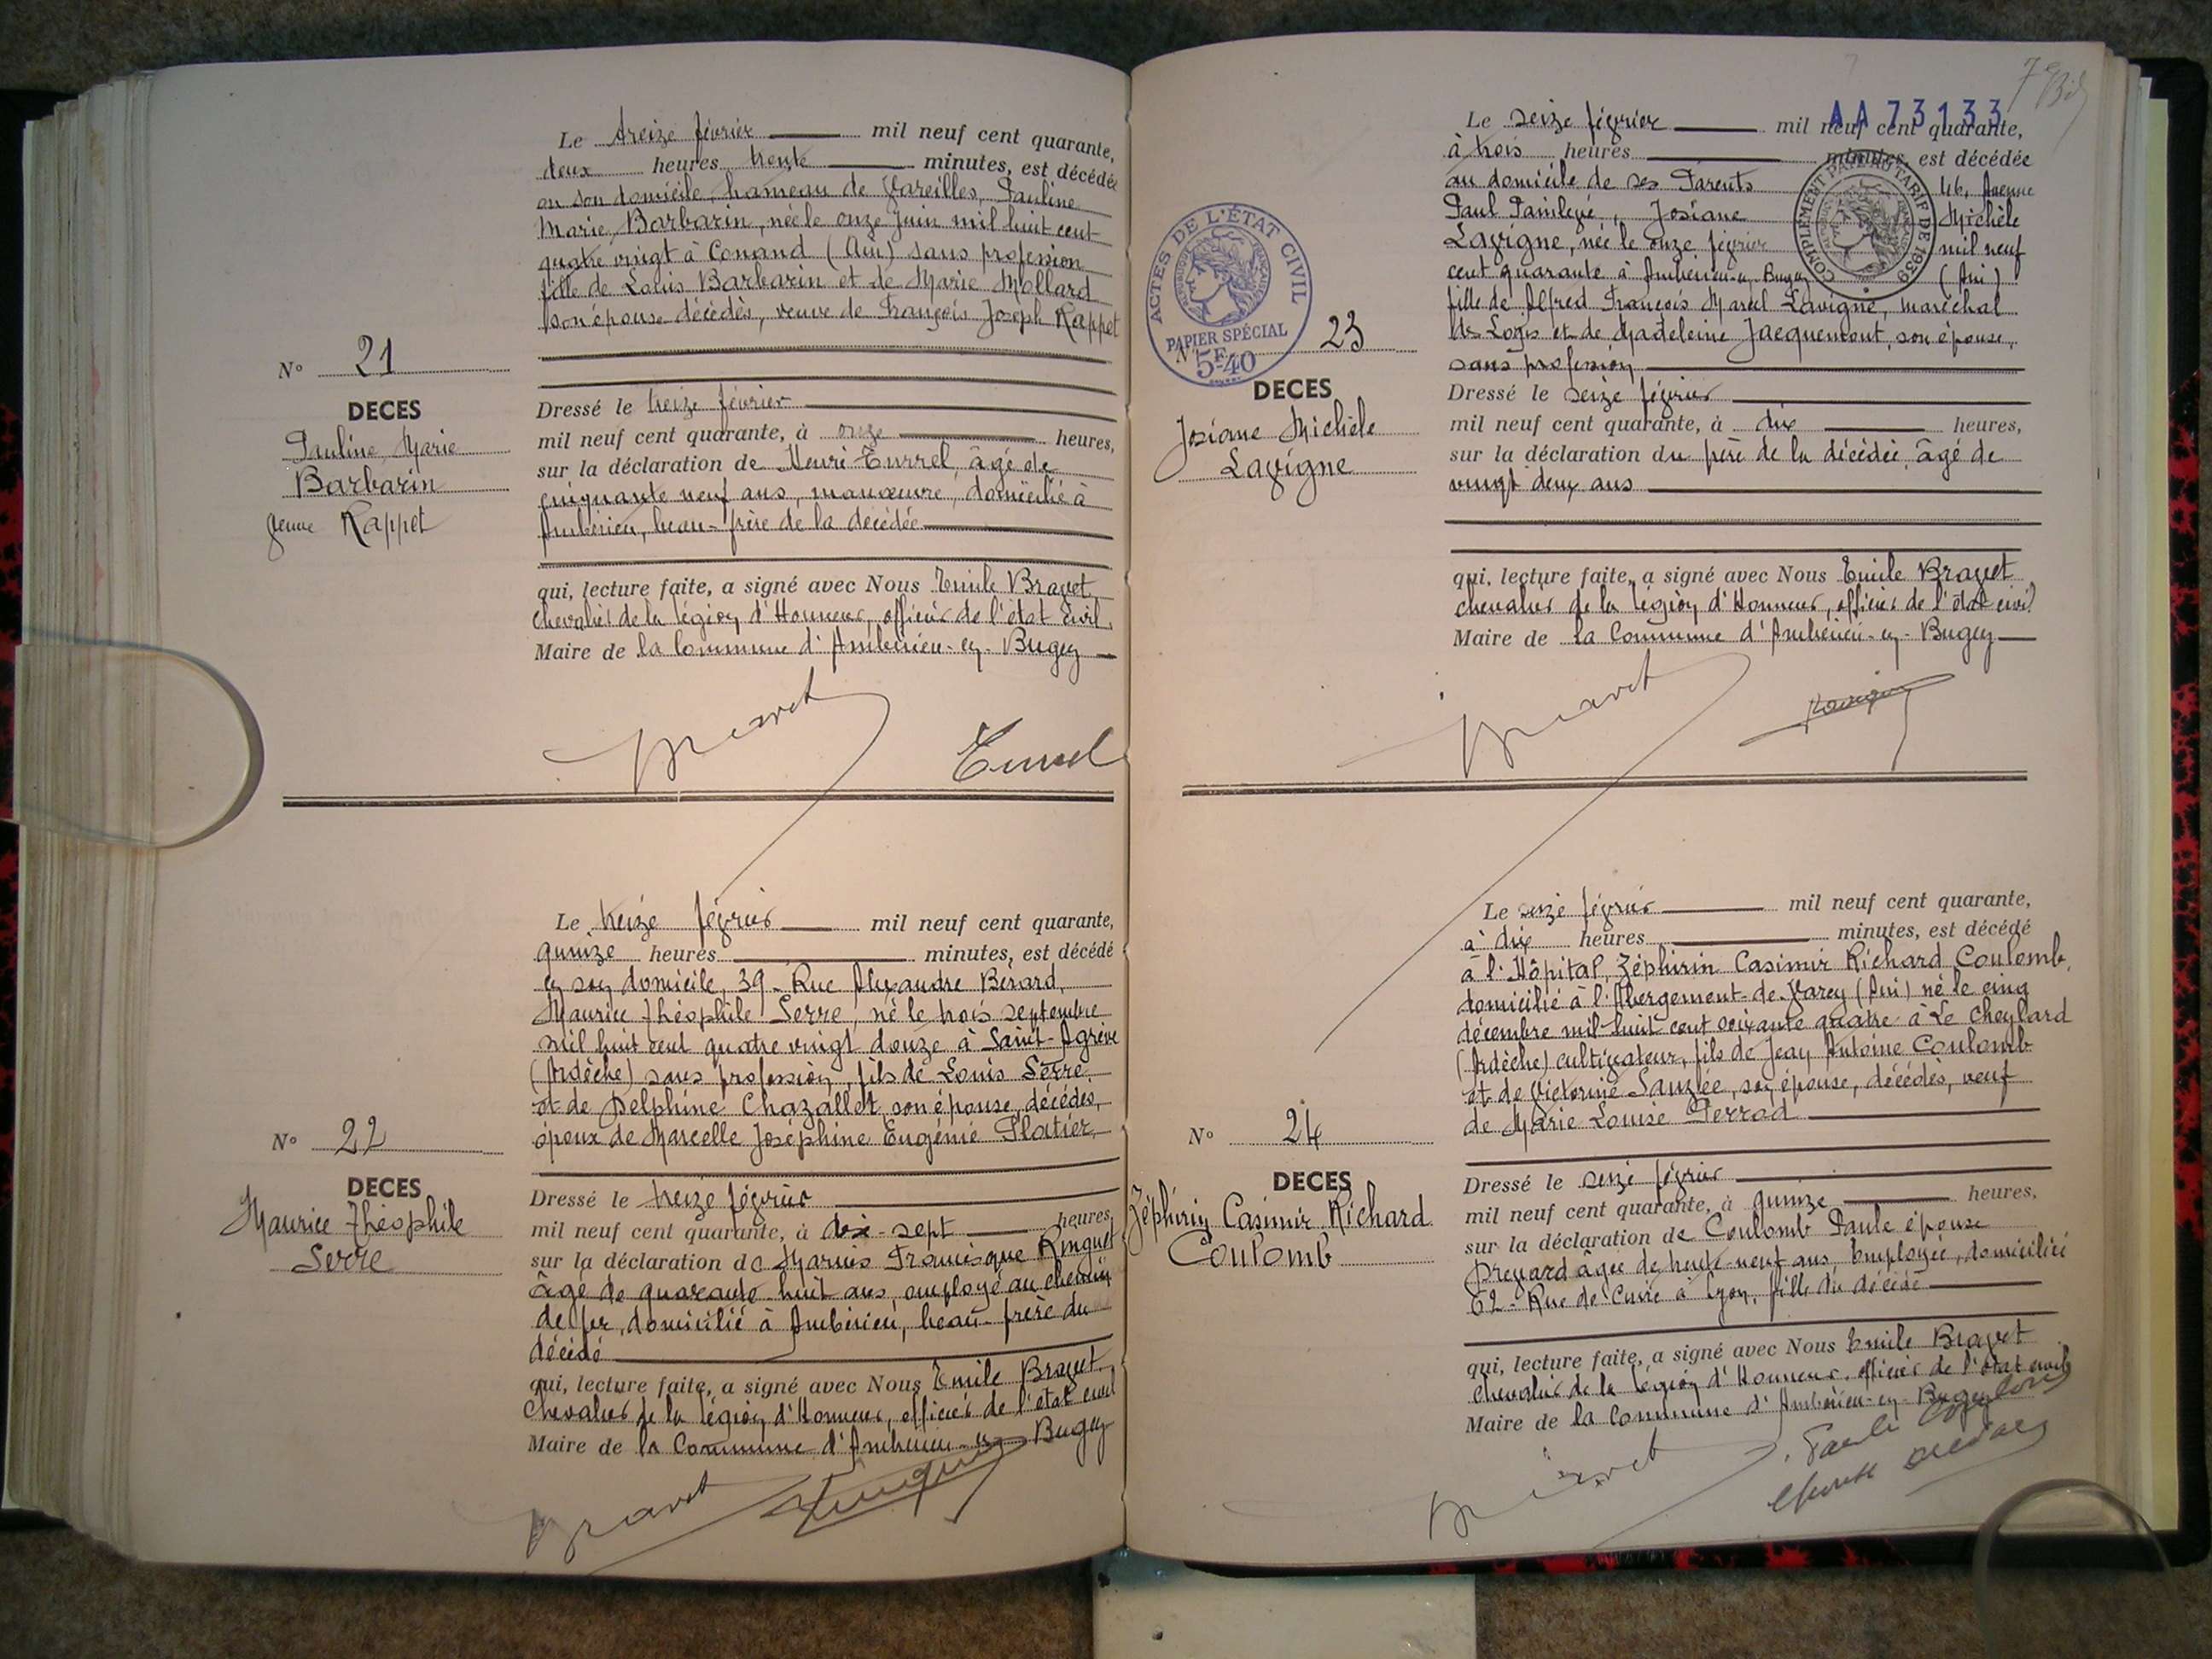 Le treize février mil neuf cent quarante,
deux heures trente minutes, est décédée
en son domicile, hameau de Vareilles, Pauline
Marie Barbarin, née le onze juin mil huit cent
quatre vingt à Conand (Ain) sans profession
fille de Louis Barbarin et de Marie Mollard
son épouse décédés, veuve de François Joseph Rappet
N° 21
DECES
Pauline Marie
Barbarin
veuve Rappet
Dressé le treize février
mil neuf cent quarante, à onze heures,
sur la déclaration de Henri Turrel, âgé de
cinquante neuf ans, manœuvre, domicilié à
Ambérieu, beau-frère de la décédée
qui, lecture faite, a signé avec Nous Emile Bravet,
chevalier de la légion d'Honneur, officier de l'état civil,
Maire de la Commune d'Ambérieu-en-Bugey
Bravet
Turrel
Le treize février mil neuf cent quarante,
quinze heures minutes, est décédé
en son domicile, 39 - Rue Alexandre Bérard,
Maurice Théophile Serre, né le trois septembre
mil huit cent quatre vingt douze à Saint-Agrève
(Ardèche) sans profession, fils de Louis Serre
et de Delphine Chazallet, son épouse, décédés,
époux de Marcelle Joséphine Eugénie Platier,
N° 22
DECES
Maurice Théophile
Serre
Dressé le treize février
mil neuf cent quarante, à dix-sept heures,
sur la déclaration de Marius Francisque Ringuet
âgé de quarante-huit ans, employé au chemin
de fer, domicilié à Ambérieu, beau-frère du
décédé
qui, lecture faite, a signé avec Nous Emile Bravet,
chevalier de la légion d'Honneur, officier de l'état civil
Maire de la Commune d'Ambérieu-en-Bugey
Bravet
Ringuet
7 Bis
AA 73133
Le seize février mil neuf cent quarante,
à trois heures minutes, est décédée
au domicile de ses Parents 46, Avenue
Paul Painlevé, Josiane Michèle
Lavigne, née le onze février mil neuf
cent quarante à Ambérieu-en-Bugey (Ain)
fille de Alfred François Marcel Lavigne, maréchal
des Logis et de Madeleine Jacquemont, son épouse,
sans profession
COMPLÉMENT PAYÉ AU TARIF DE 1939
ACTES DE L'ÉTAT CIVIL
PAPIER SPÉCIAL
5F.40
N° 23
DECES
Josiane Michèle
Lavigne
Dressé le seize février
mil neuf cent quarante, à dix heures,
sur la déclaration du père de la décédée, âgé de
vingt deux ans
qui, lecture faite, a signé avec Nous Emile Bravet
chevalier de la légion d'Honneur, officier de l'état civil
Maire de la Commune d'Ambérieu-en-Bugey
Bravet
Lavigne
Le seize février mil neuf cent quarante,
à dix heures minutes, est décédé
à l'Hôpital, Zéphirin Casimir Richard Coulomb,
domicilié à l'Abergement-de-Varey (Ain) né le cinq
décembre mil huit cent soixante quatre à Le Cheylard
(Ardèche) cultivateur, fils de Jean Antoine Coulomb
et de Victorine Sauzée, son épouse, décédés, veuf
de Marie Louise Perrod
N° 24
DECES
Zéphirin Casimir Richard
Coulomb
Dressé le seize février
mil neuf cent quarante, à quinze heures,
sur la déclaration de Coulomb Paule épouse
âgée de trente-neuf ans, Employée, domiciliée
62 - Rue de Cuire à Lyon, fille du décédé
qui, lecture faite, a signé avec Nous Emile Bravet
chevalier de la légion d'Honneur, officier de l'état civil
Maire de la Commune d'Ambérieu-en-Bugey
Bravet
Paule